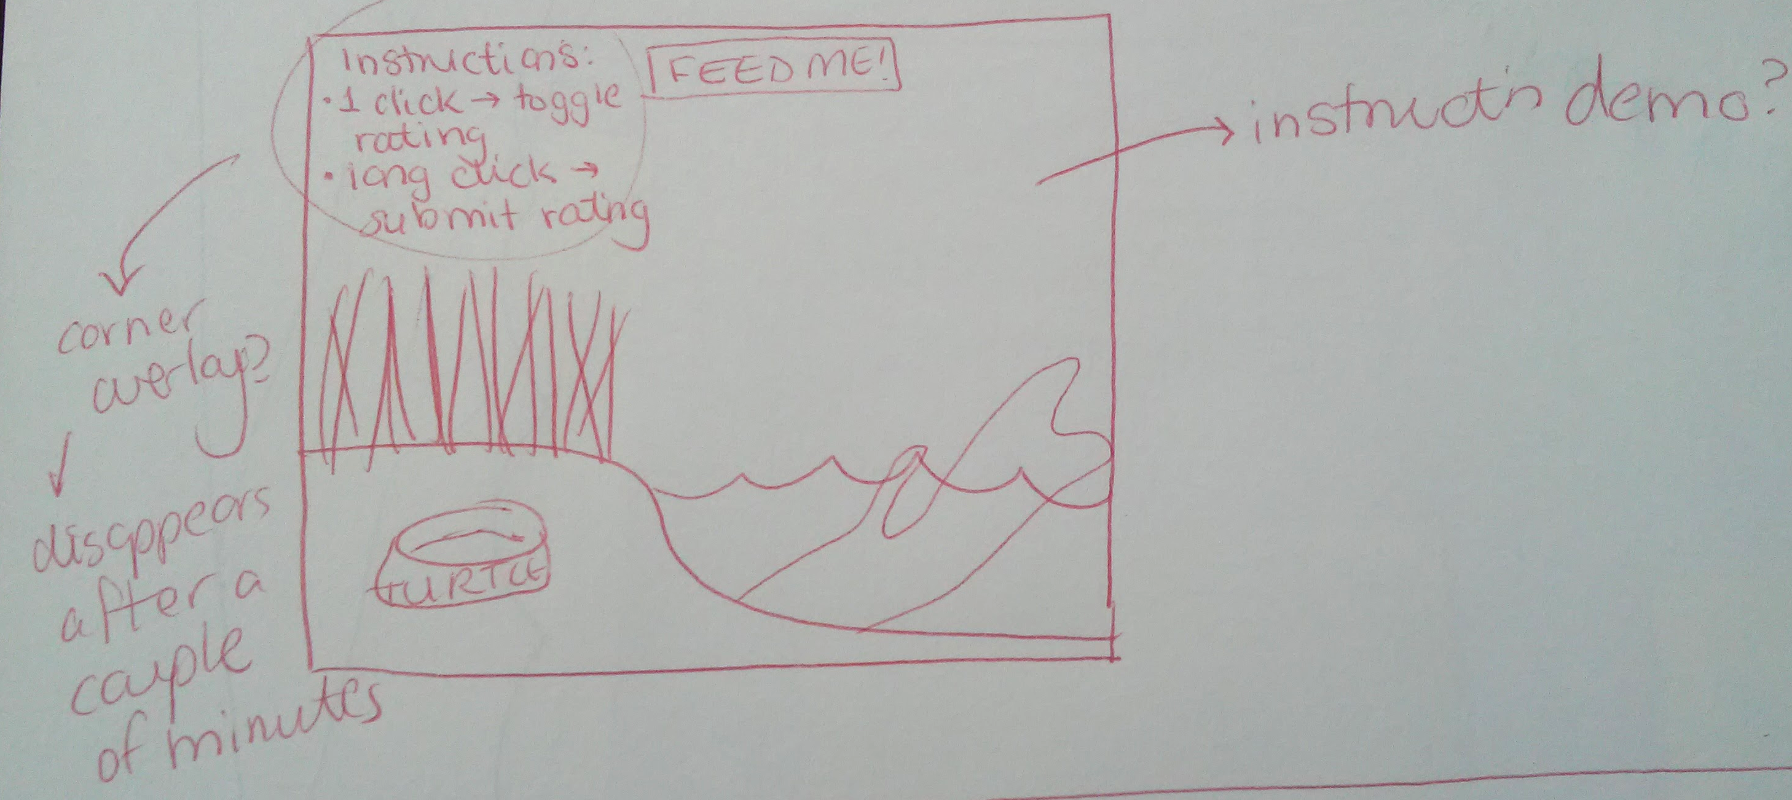 Instructions:
• 1 click → toggle
rating
• long click →
submit rating
FEED ME!
→ instruct'n demo?
corner
overlay?
disappears
after a
couple
of minutes
TURTLE